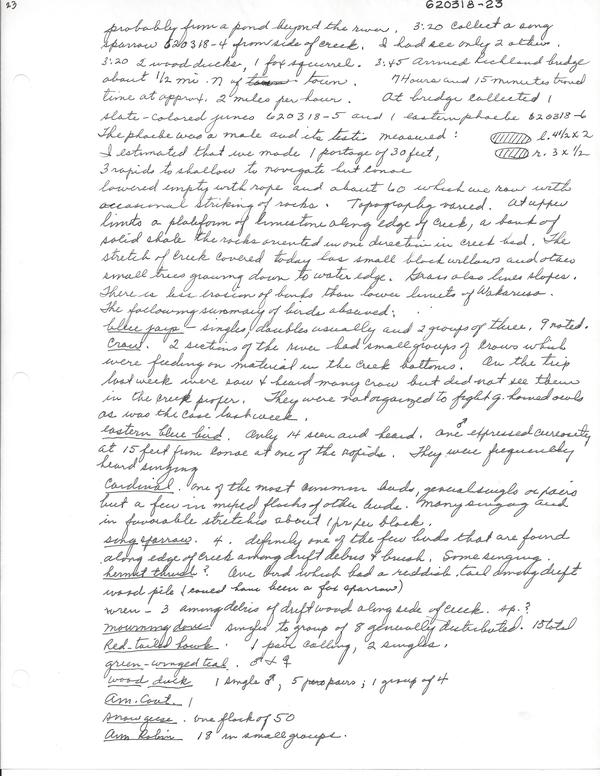 23
620318-23
probably from a pond beyond the river. 3:20 collect a song
sparrow 620318-4 from side of creek. I had see only 2 others.
3:20 2 wood ducks, 1 fox squirrel. 3:45 Arrived Richland bridge
about 1/2 mi. N of town. 7 Hours and 15 minutes travel
time at approx. 2 miles per hour. At bridge collected 1
slate-colored junco 620318-5 and 1 eastern phoebe 620318-6
The phoebe was a male and its testis measured: l. 4 1/2 x 2
I estimated that we made 1 portage of 30 feet, r. 3 x 1/2
3 rapids to shallow to navigate but canoe
lowered empty with rope and about 60 which we row with
occasional striking of rocks. Topography varied. At upper
limits a plateform of limestone along edge of creek, a bank of
solid shale the rocks oriented in one direction in creek bed. The
stretch of creek covered today has small black willows and other
small trees growing down to water edge. Grass also lines slopes.
There is less erosion of banks than lower limits of Wakarusa.
The following summary of birds observed:
blue jays - singles, doubles usually and 2 groups of three. 9 noted.
Crow. 2 sections of the river had small groups of crows which
were feeding on material in the creek bottoms. On the trip
last week were saw & heard many crow but did not see them
in the creek proper. They were not organized to fight g. horned owls
as was the case last week.
eastern blue bird. Only 14 seen and heard. One ♂ expressed curiosity
at 15 feet from canoe at one of the rapids. They were frequently
heard singing
Cardinal. one of the most common birds, general singles or pairs
but a few in mixed flocks of other birds. Many singing and
in favorable stretches about 1 pr per block.
song sparrow. 4. definitly one of the few birds that are found
along edge of creek among drift debris & brush. Some singing.
hermit thrush? One bird which had a reddish tail among drift
wood pile (could have been a fox sparrow)
wren - 3 among debris of driftwood along side of creek. sp.?
mourning dove singles to group of 8 generally distributed. 15 total
Red-tailed hawk. 1 pair calling, 2 singles.
green-winged teal. ♂ & ♀
wood duck 1 single ♂, 5 pairs; 1 group of 4
Am. Coot. 1
snow geese. one flock of 50
Am Robin 18 in small groups.